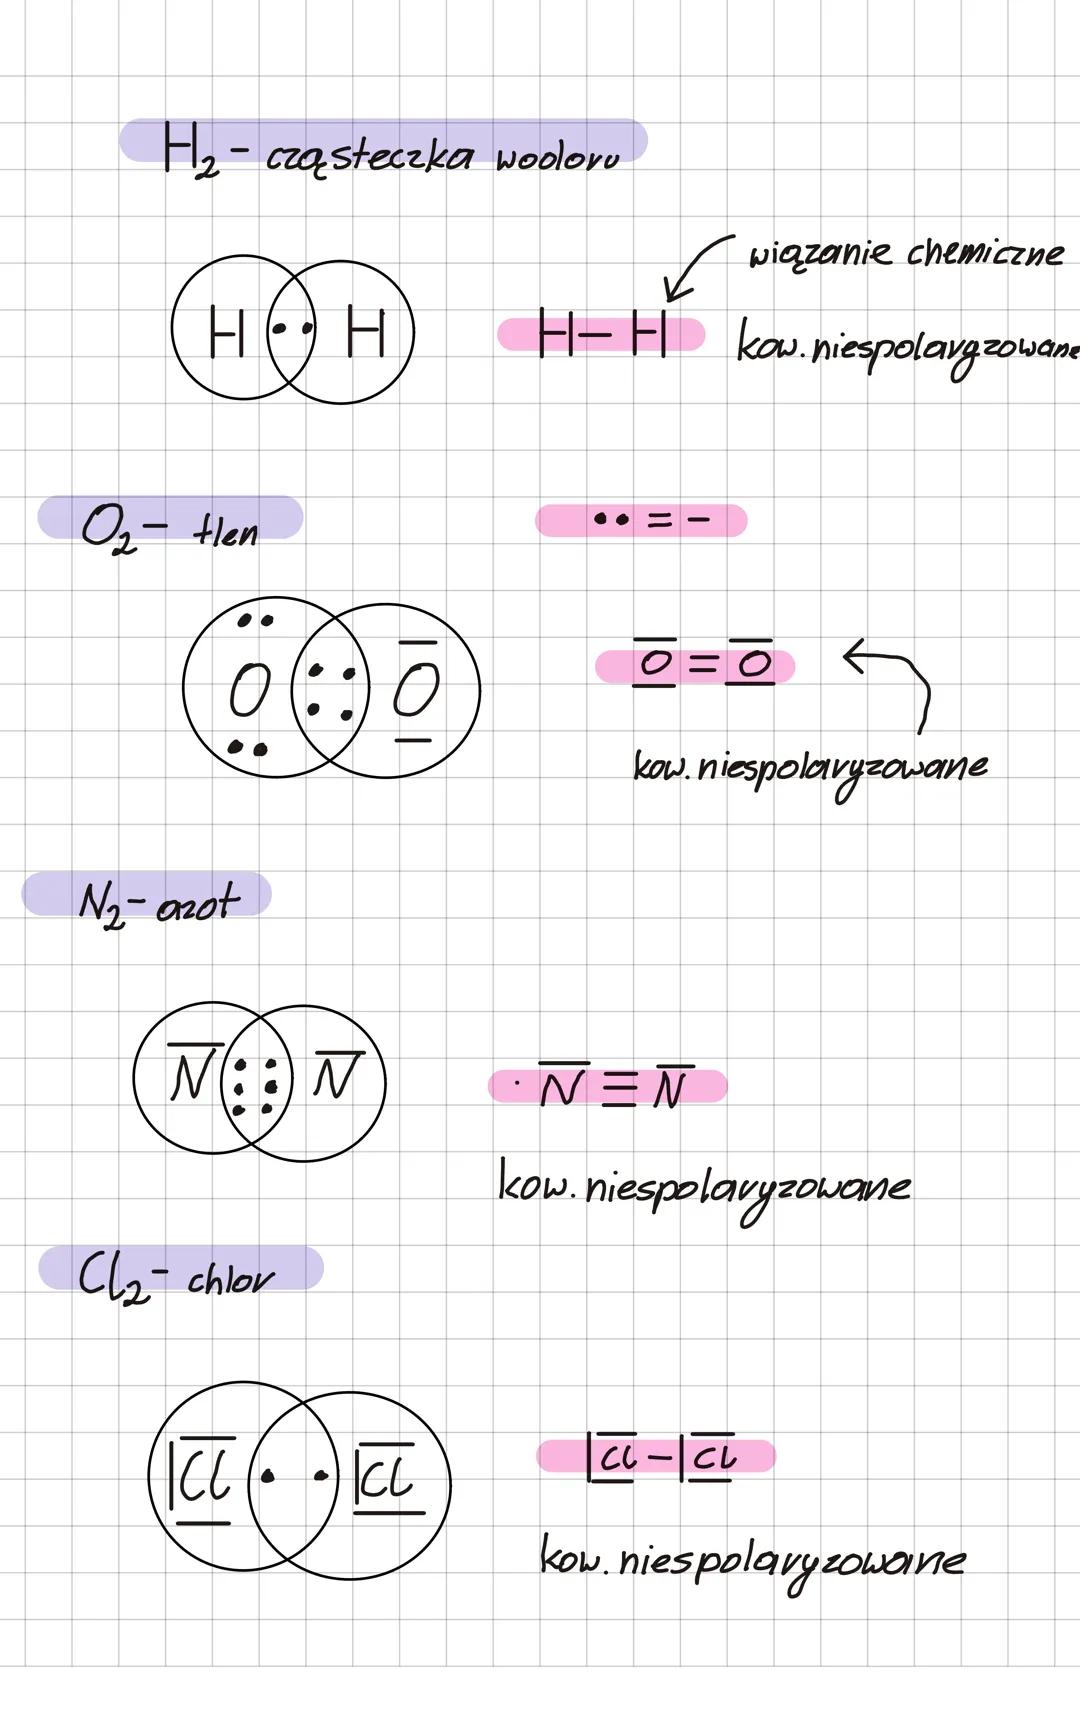 H₂ - cząsteczka wodoru
H H
H – H
wiązanie chemiczne
kow. niespolaryzowane
O₂ - tlen
•• = –
O O
O = O
kow. niespolaryzowane
N₂ - azot
N N
N ≡ N
kow. niespolaryzowane
Cl₂ - chlor
|Cl |Cl
|Cl – |Cl
kow. niespolaryzowane